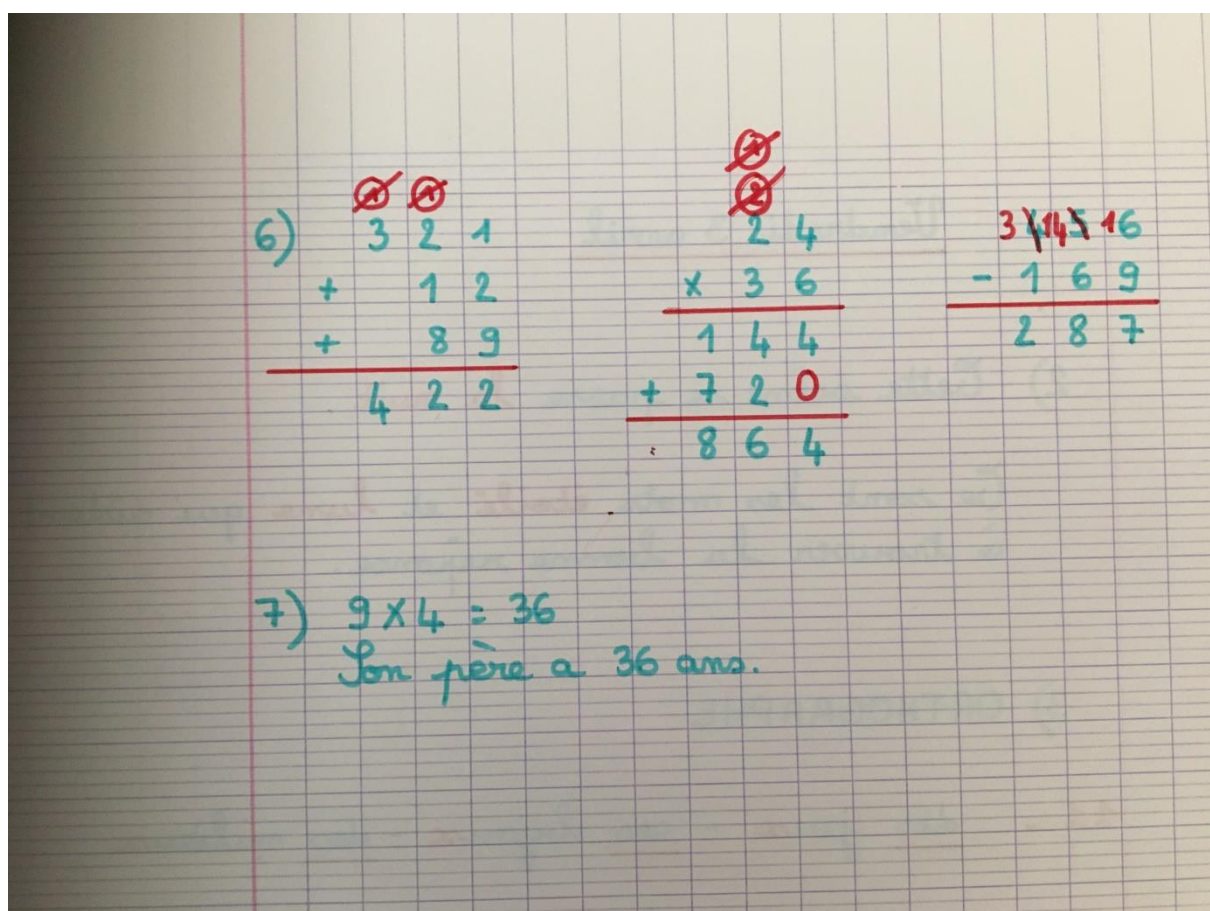 ① ①
6) 3 2 1
+ 1 2
+ 8 9
4 2 2
①
②
2 4
x 3 6
1 4 4
+ 7 2 0
8 6 4
3 4 14 5 16
- 1 6 9
2 8 7
7) 9 x 4 = 36
Son père a 36 ans.